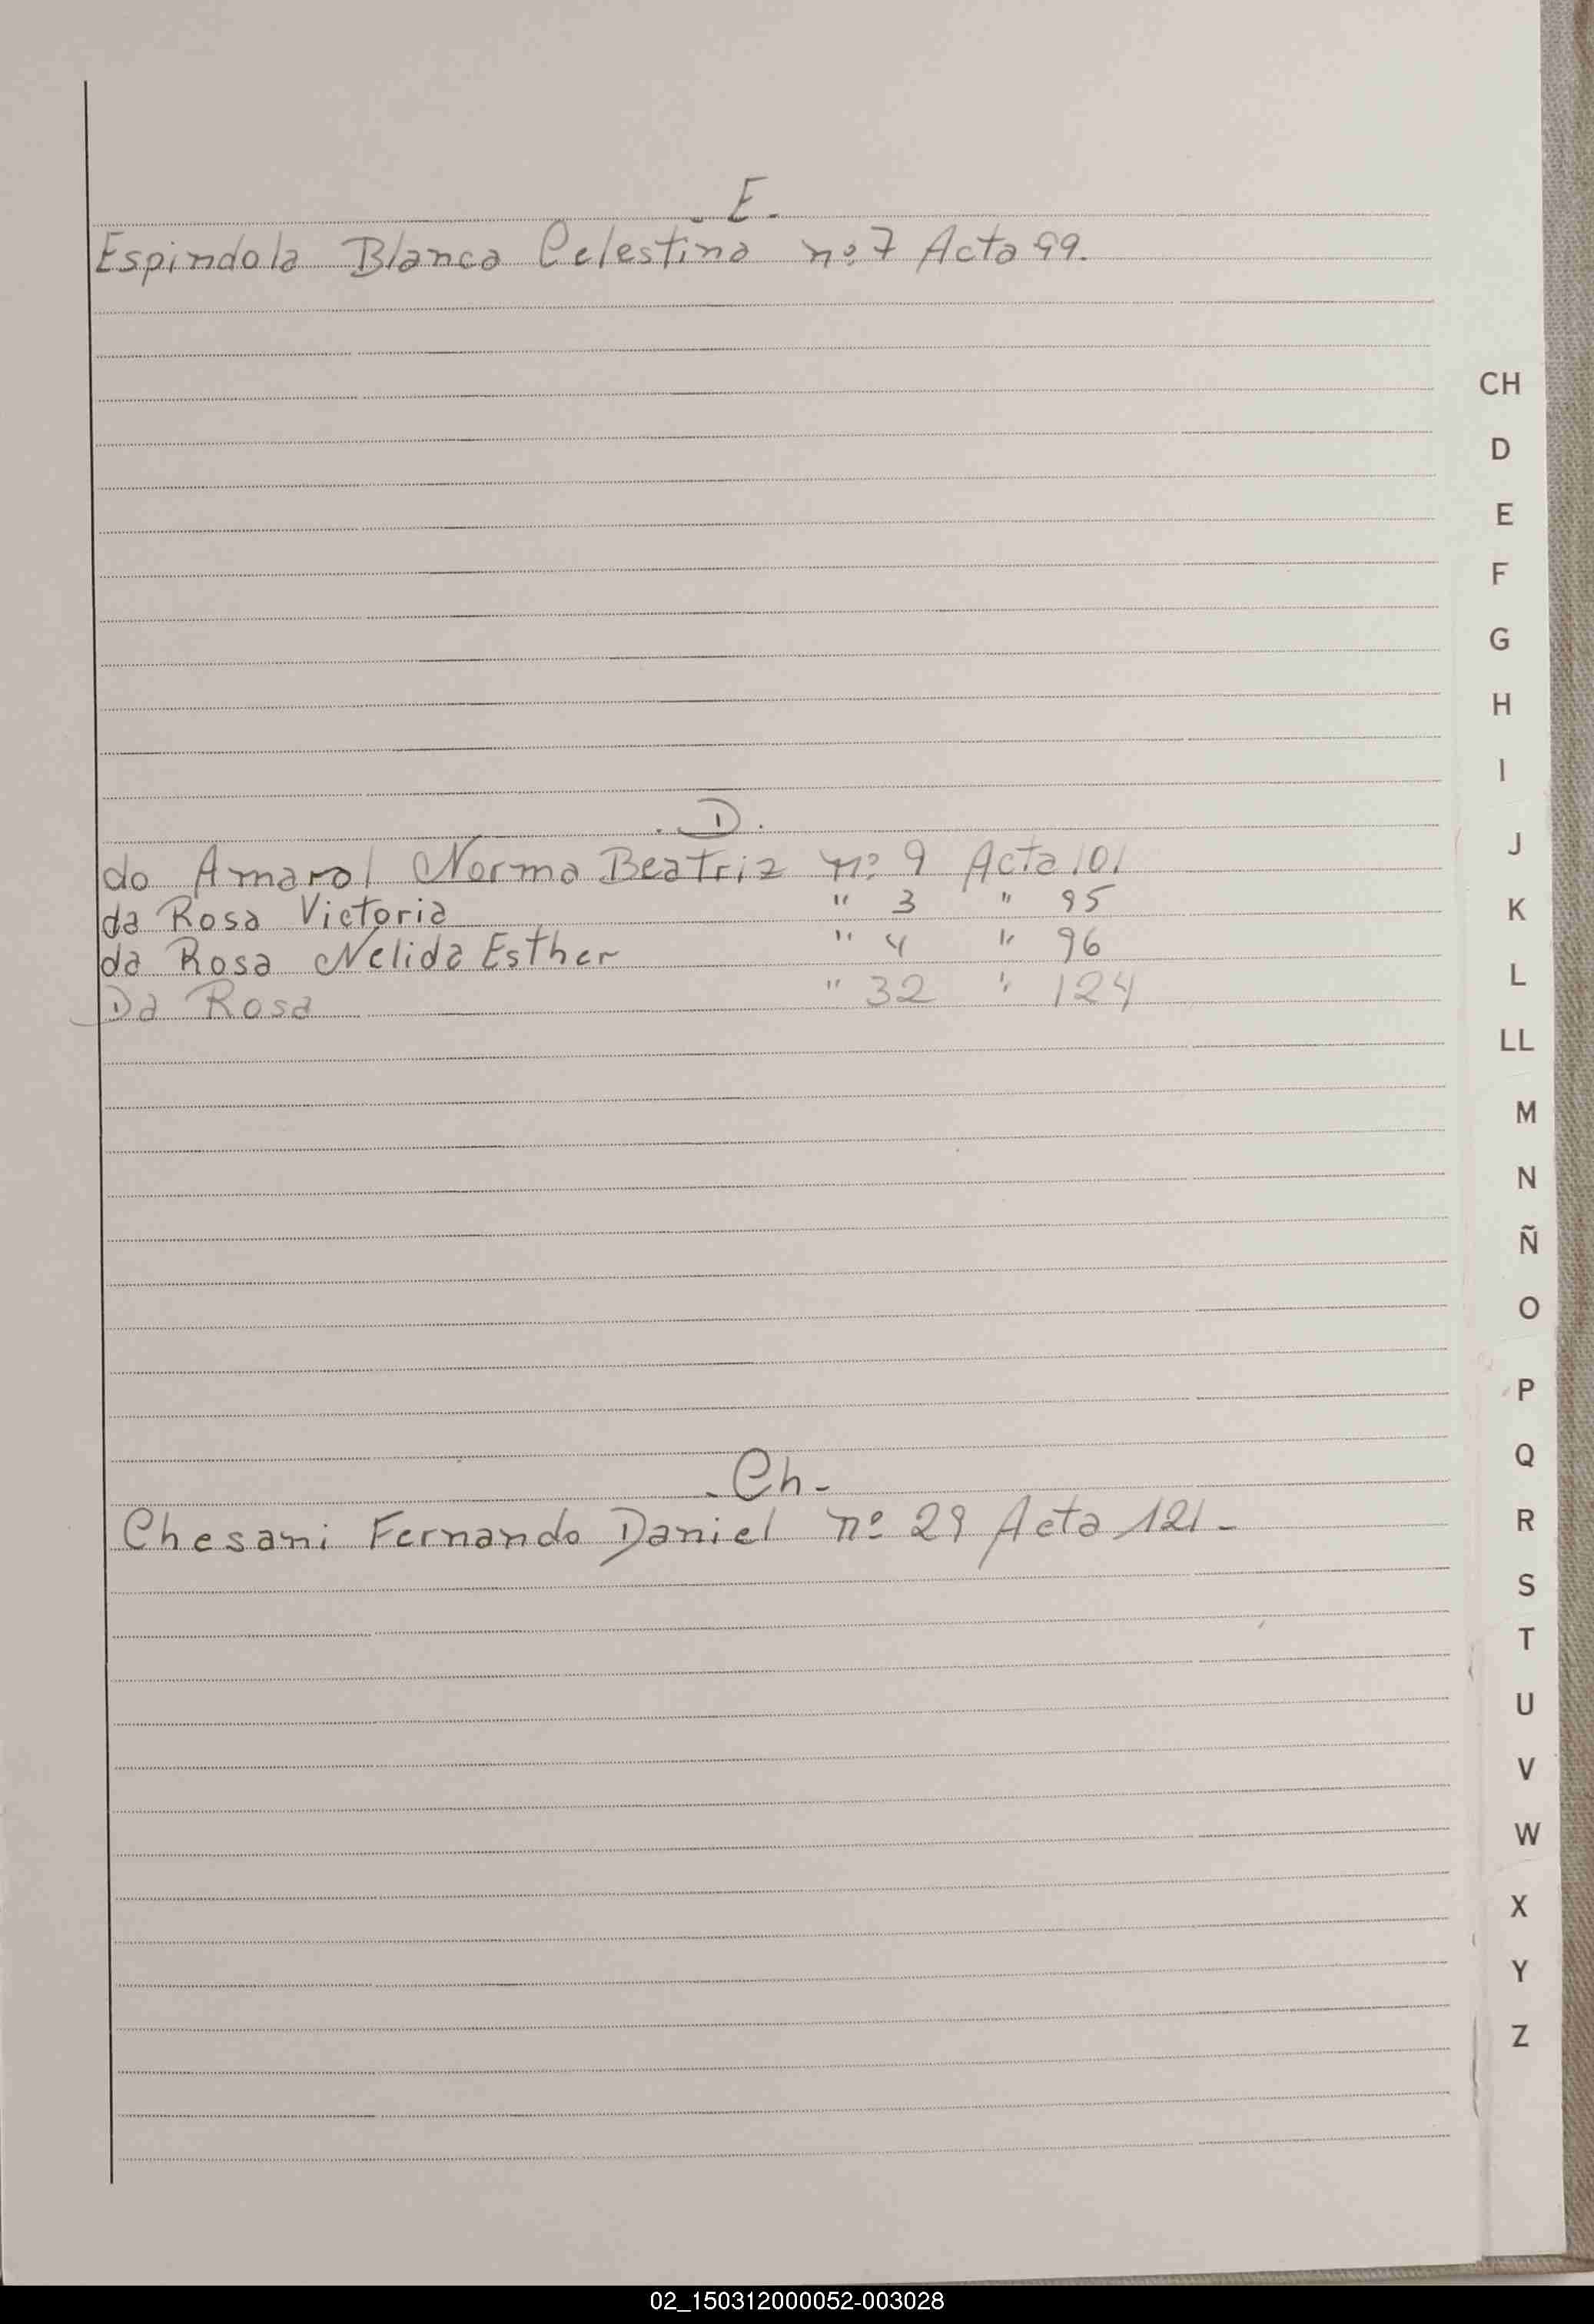 - E -
Espindola Blanca Celestina nº 7 Acta 99.
. D .
do Amaral Norma Beatriz nº 9 Acta 101
da Rosa Victoria " 3 " 95
da Rosa Nelida Esther " 4 " 96
Da Rosa " 32 " 124
- Ch -
Chesani Fernando Daniel nº 29 Acta 121 -
CH
D
E
F
G
H
I
J
K
L
LL
M
N
Ñ
O
P
Q
R
S
T
U
V
W
X
Y
Z
02_150312000052-003028